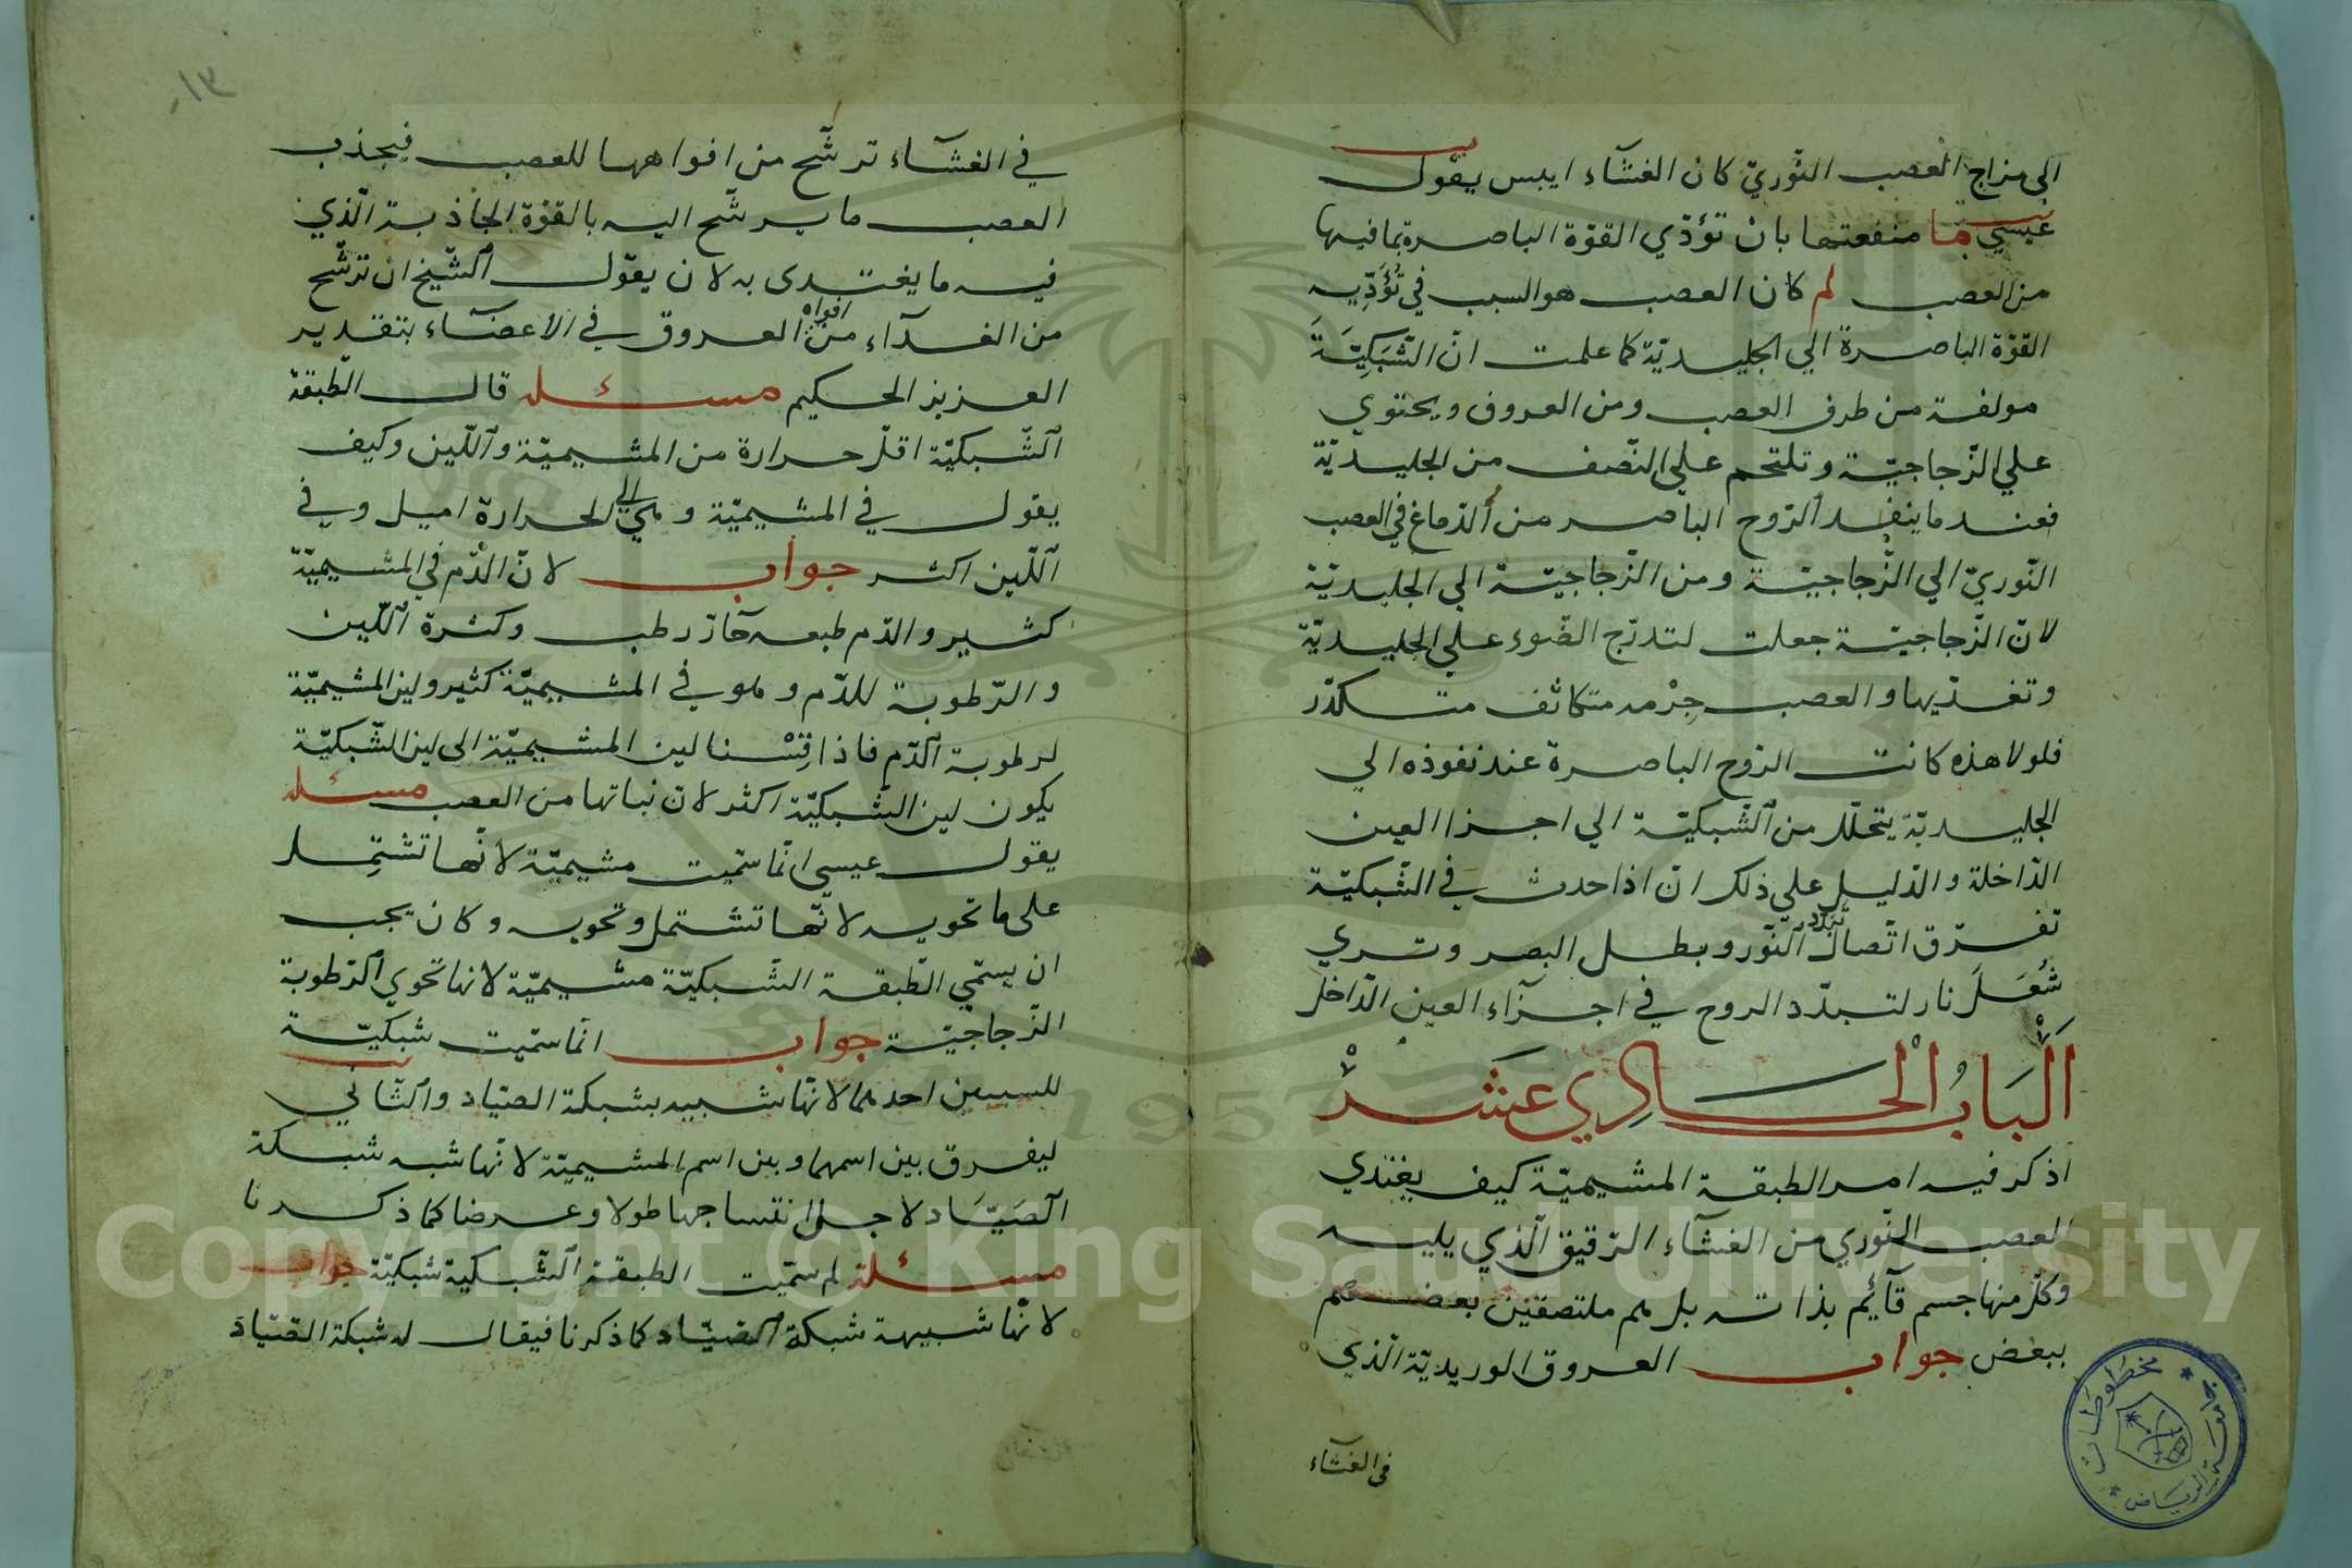 الى مزاج العصب النّوريّ كان الغشآء ايبس يقول
عيسي ما منفعتها بان تؤدّي القوّة الباصرة بما فيها
من العصب لم كان العصب هو السبب في تؤدّيه
القوّة الباصرة الي الجليديّة كما علمت انّ الشّبَكِيّةَ
مولفة من طرف العصب ومن العروق ويحتوي
علي الزّجاجيّة وتلتحم علي النّصف من الجليديّة
فعند ما ينفد الرّوح الباصر من الدّماغ في العصب
النّوريّ الي الزّجاجيّة ومن الزّجاجيّة الي الجليديّة
لانّ الزّجاجيّة جعلت لتدرّج الضّوء علي الجليديّة
وتغذّيها والعصب جِرْمه متكاثف متكدّر
فلولا هذه كانت الرّوح الباصرة عند نفوذه الي
الجليديّة يتحلّل من الشّبكيّة الي اجزا العين
الدّاخلة والدّليل علي ذلك انّ اذا حدث في الشّبكيّة
تفرّق اتّصال تبدّد النّور وبطل البصر وتري
شُعَلَ نار لتبدّد الروح في اجزآء العين الدّاخل
اَلْبَابُ الْحَادِي عَشَرْ
اذكر فيه امر الطبقة المشيميّة كيف يغتذي
العصب النّوري من الغشآء الرّقيق الّذي يليه
وكلّ منها جسم قآئم بذاته بل هم ملتصقين بعضهم
ببعض جواب العروق الوريديّة الّذي
في الغشآء
١٣
في الغشآء ترشّح من افواهها للعصب فيجذب
العصب ما يرشّح اليه بالقوّة الجاذبة الّذي
فيه ما يغتدى به لان يقول الشّيخ ان ترشّح
من الغدآء من افواه العروق في الاعضآء بتقدير
العزيز الحكيم مسئله قال الطّبقة
الشّبكيّة اقلّ حرارة من المشيميّة واللّين وكيف
يقول في المشيميّة وهي الي الحرارة اميل وفي
اللّين اكثر جواب لانّ الدّم في المشيميّة
كثير والدّم طبعه حآرّ رطب وكثرة اللّين
والرّطوبة للدّم وهو في المشيميّة كثير ولين المشيميّة
لرطوبة الدّم فاذا قِسْنا لين المشيميّة الى لين الشّبكيّة
يكون لين الشّبكيّة اكثر لانّ نباتها من العصب مسئله
يقول عيسى انّما سمّيت مشيميّة لانّها تشتمل
على ما تحويه لانّها تشتمل وتحويه وكان يجب
ان يسمّي الطّبقة الشّبكيّة مشيميّة لانها تحوي الرّطوبة
الزّجاجيّة جواب انّما سمّيت شبكيّة
للسببين احدهما لانّها شبيه بشبكة الصيّاد والثّاني
ليفرق بين اسمها وبين اسم المشيميّة لانّها شبه شبكة
الصَيّاد لاجل انتساجها طولا وعرضا كما ذكرنا
مسئلة لم سمّيت الطبقة الشّبكية شبكيّة جواب
لانّها شبيهة شبكة الصيّاد كما ذكرنا فيقال له شبكة الصّيّاد
مخطوطات
جامعة الرياض
Copyright © King Saud University
1957